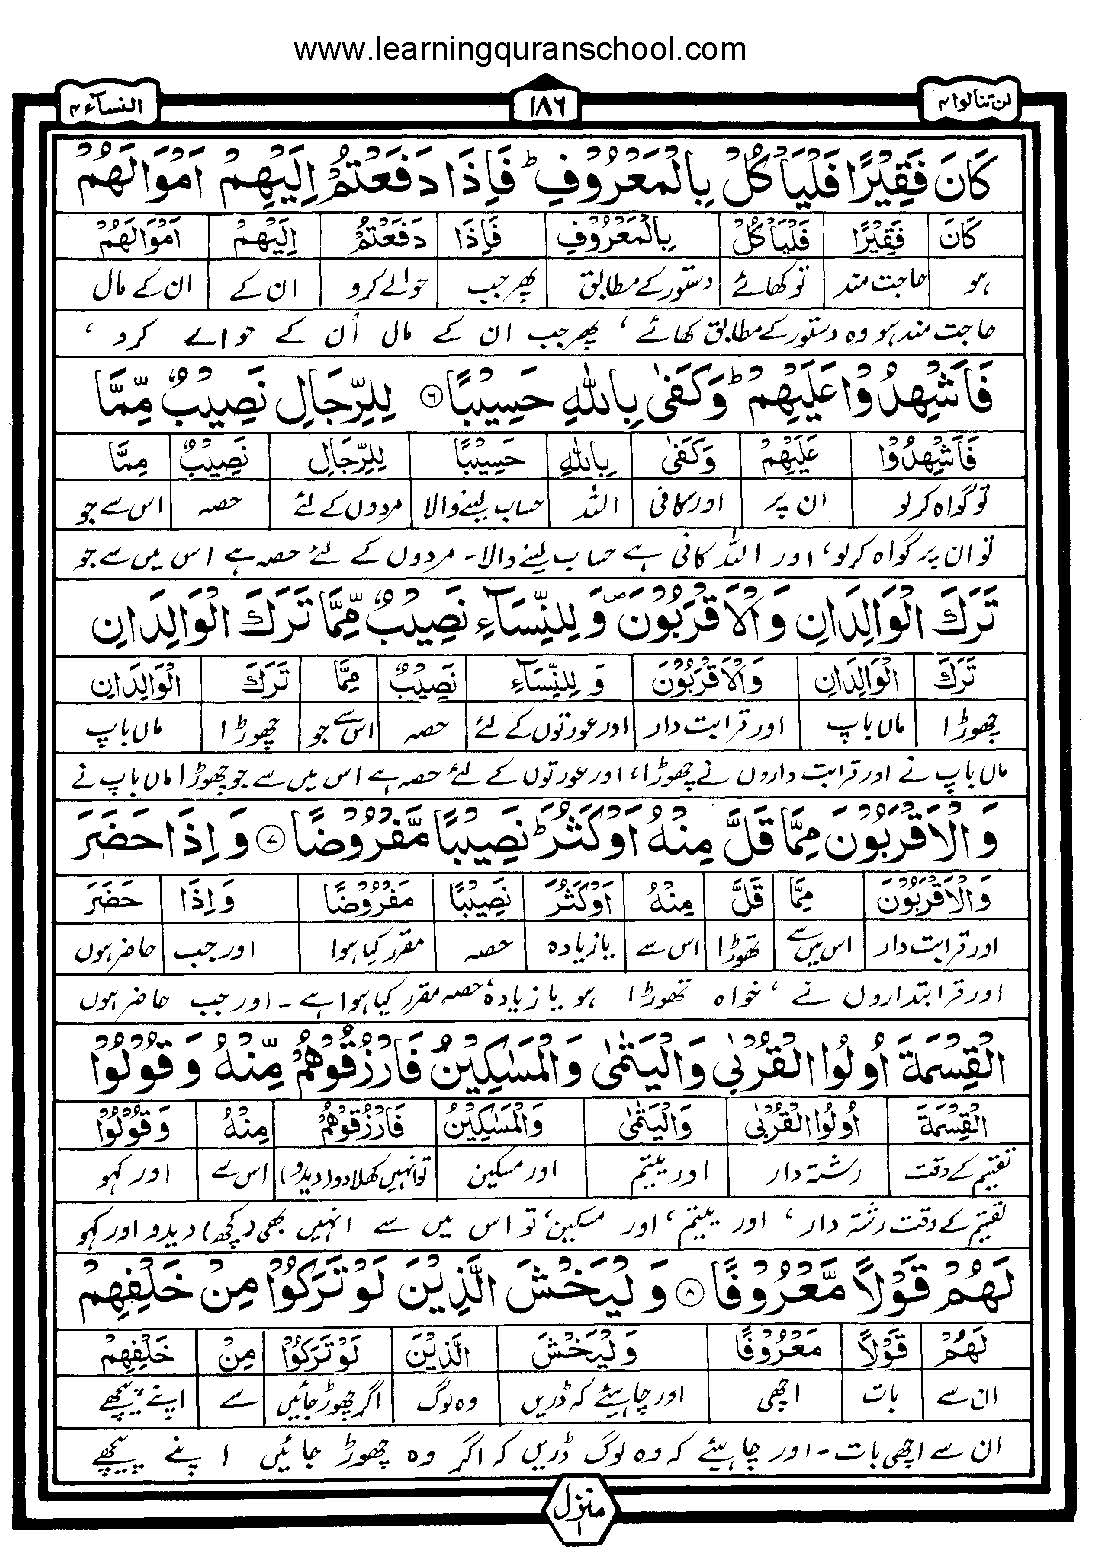 www.learningquranschool.com
لن تنالوا ۴ ۱۸۶ النسآء ۴
كَانَ فَقِيْرًا فَلْيَاْكُلْ بِالْمَعْرُوْفِ ؕ فَاِذَا دَفَعْتُمْ اِلَيْهِمْ اَمْوَالَهُمْ
كَانَ فَقِيْرًا فَلْيَاْكُلْ بِالْمَعْرُوْفِ فَاِذَا دَفَعْتُمْ اِلَيْهِمْ اَمْوَالَهُمْ
ہو حاجت مند تو کھائے دستور کے مطابق پھر جب حوالے کرو ان کے ان کے مال
حاجت مند ہو وہ دستور کے مطابق کھائے ‘ پھر جب ان کے مال اُن کے حوالے کرد ‘
فَاَشْهِدُوْا عَلَيْهِمْ ؕ وَكَفٰى بِاللّٰهِ حَسِيْبًا ۶ لِلرِّجَالِ نَصِيْبٌ مِّمَّا
فَاَشْهِدُوْا عَلَيْهِمْ وَكَفٰى بِاللّٰهِ حَسِيْبًا لِلرِّجَالِ نَصِيْبٌ مِمَّا
تو گواہ کرلو ان پر اور کافی اللہ حساب لینے والا مردوں کے لئے حصہ اس سے جو
تو ان پر گواہ کرلو‘ اور اللہ کافی ہے حساب لینے والا۔ مردوں کے لئے حصہ ہے اس میں سے جو
تَرَكَ الْوَالِدَانِ وَالْاَقْرَبُوْنَ ۪ وَلِلنِّسَآءِ نَصِيْبٌ مِّمَّا تَرَكَ الْوَالِدَانِ
تَرَكَ الْوَالِدَانِ وَالْاَقْرَبُوْنَ وَلِلنِّسَآءِ نَصِيْبٌ مِمَّا تَرَكَ الْوَالِدَانِ
چھوڑا ماں باپ اور قرابت دار اور عورتوں کے لئے حصہ اس سے جو چھوڑا ماں باپ
ماں باپ نے اور قرابت داروں نے چھوڑا، اور عورتوں کے لئے حصہ ہے اس میں سے جو چھوڑا ماں باپ نے
وَالْاَقْرَبُوْنَ مِمَّا قَلَّ مِنْهُ اَوْ كَثُرَ ؕ نَصِيْبًا مَّفْرُوْضًا ۷ وَاِذَا حَضَرَ
وَالْاَقْرَبُوْنَ مِمَّا قَلَّ مِنْهُ اَوْ كَثُرَ نَصِيْبًا مَفْرُوْضًا وَاِذَا حَضَرَ
اور قرابت دار اس میں سے تھوڑا اس سے یا زیادہ حصہ مقرر کیا ہوا اور جب حاضر ہوں
اور قرابتداروں نے ‘ خواہ تھوڑا ہو یا زیادہ‘ حصہ مقرر کیا ہوا ہے ۔ اور جب حاضر ہوں
الْقِسْمَةَ اُولُوا الْقُرْبٰى وَالْيَتٰمٰى وَالْمَسٰكِيْنُ فَارْزُقُوْهُمْ مِّنْهُ وَقُوْلُوْا
الْقِسْمَةَ اُولُوا الْقُرْبٰى وَالْيَتٰمٰى وَالْمَسٰكِيْنُ فَارْزُقُوْهُمْ مِنْهُ وَقُوْلُوْا
تقسیم کے وقت رشتہ دار اور یتیم اور مسکین تو انہیں کھلا دو (دیدو) اس سے اور کہو
تقسیم کے وقت رشتہ دار ‘ اور یتیم ‘ اور مسکین‘ تو اس میں سے انہیں بھی (کچھ) دیدو اور کہو
لَهُمْ قَوْلًا مَّعْرُوْفًا ۸ وَلْيَخْشَ الَّذِيْنَ لَوْ تَرَكُوْا مِنْ خَلْفِهِمْ
لَهُمْ قَوْلًا مَعْرُوْفًا وَلْيَخْشَ الَّذِيْنَ لَوْ تَرَكُوْا مِنْ خَلْفِهِمْ
ان سے بات اچھی اور چاہیئے کہ ڈریں وہ لوگ اگر چھوڑ جائیں سے اپنے پیچھے
ان سے اچھی بات ۔ اور چاہیئے کہ وہ لوگ ڈریں کہ اگر وہ چھوڑ جائیں اپنے پیچھے
منزل ۱